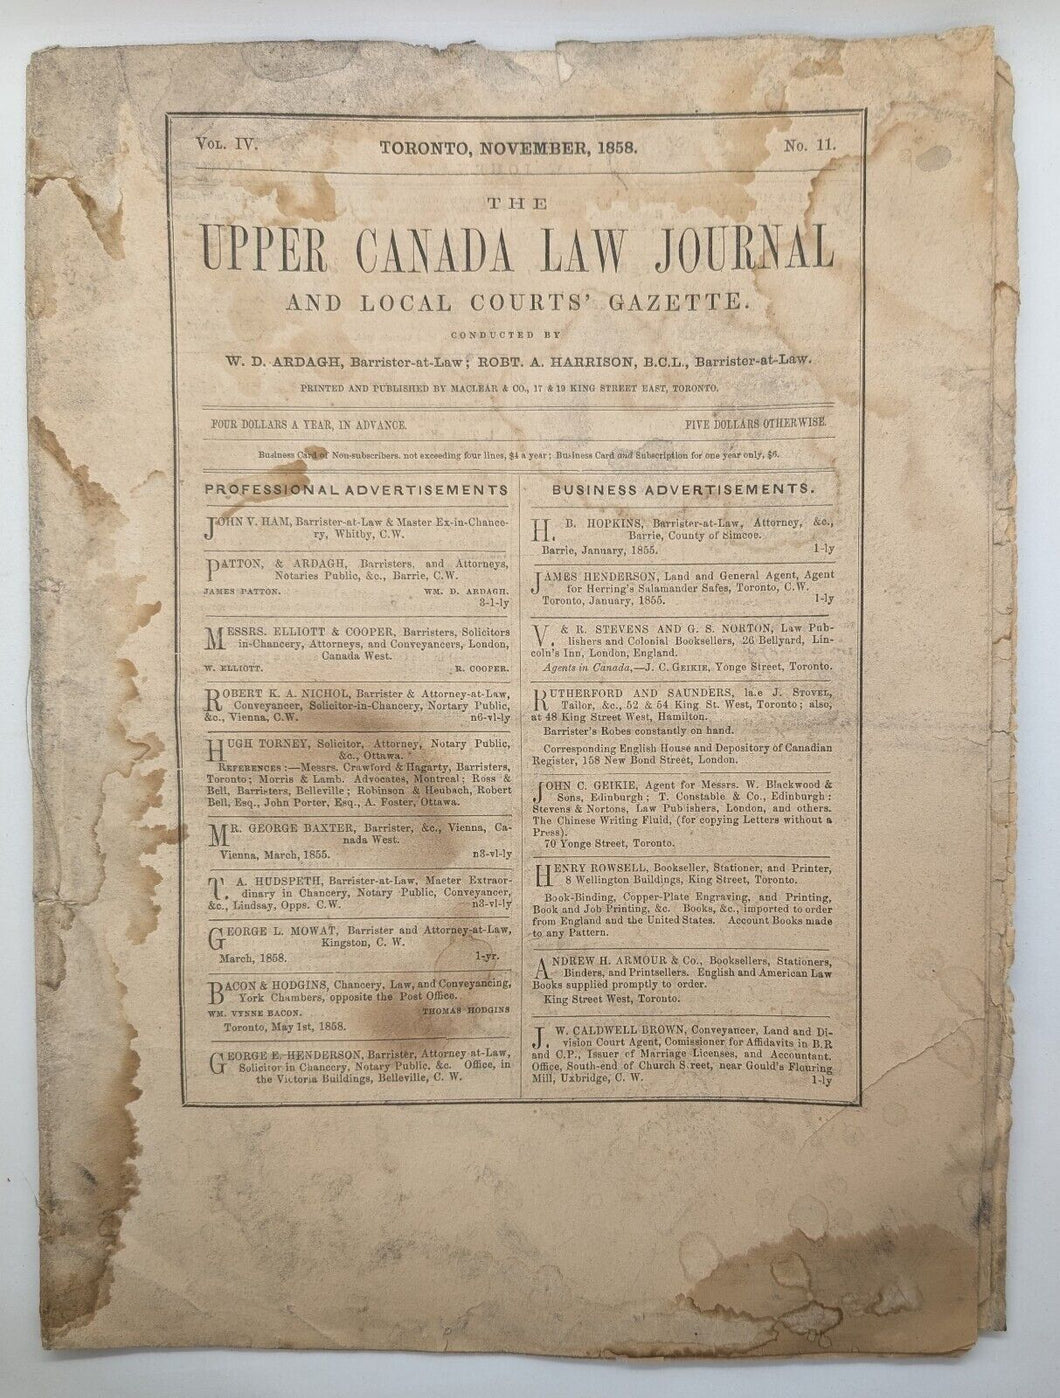 Vol. IV. TORONTO, NOVEMBER, 1858. No. 11.
THE
UPPER CANADA LAW JOURNAL
AND LOCAL COURTS' GAZETTE.
CONDUCTED BY
W. D. ARDAGH, Barrister-at-Law; ROBT. A. HARRISON, B.C.L., Barrister-at-Law.
PRINTED AND PUBLISHED BY MACLEAR & CO., 17 & 19 KING STREET EAST, TORONTO.
FOUR DOLLARS A YEAR, IN ADVANCE. FIVE DOLLARS OTHERWISE.
Business Card of Non-subscribers. not exceeding four lines, $4 a year; Business Card and Subscription for one year only, $6.
PROFESSIONAL ADVERTISEMENTS
JOHN V. HAM, Barrister-at-Law & Master Ex-in-Chance-
ry, Whitby, C.W.
PATTON, & ARDAGH, Barristers, and Attorneys,
Notaries Public, &c., Barrie, C.W.
JAMES PATTON. WM. D. ARDAGH.
3-1-ly
MESSRS. ELLIOTT & COOPER, Barristers, Solicitors
in-Chancery, Attorneys, and Conveyancers, London,
Canada West.
W. ELLIOTT. R. COOPER.
ROBERT K. A. NICHOL, Barrister & Attorney-at-Law,
Conveyancer, Solicitor-in-Chancery, Nortary Public,
&c., Vienna, C.W. n6-vl-ly
HUGH TORNEY, Solicitor, Attorney, Notary Public,
&c., Ottawa.
REFERENCES:—Messrs. Crawford & Hagarty, Barristers,
Toronto; Morris & Lamb. Advocates, Montreal; Ross &
Bell, Barristers, Belleville; Robinson & Heubach, Robert
Bell, Esq., John Porter, Esq., A. Foster, Ottawa.
MR. GEORGE BAXTER, Barrister, &c., Vienna, Ca-
nada West.
Vienna, March, 1855. n3-vl-ly
T. A. HUDSPETH, Barrister-at-Law, Master Extraor-
dinary in Chancery, Notary Public, Conveyancer,
&c., Lindsay, Opps. C.W. n3-vl-ly
GEORGE L. MOWAT, Barrister and Attorney-at-Law,
Kingston, C. W.
March, 1858. 1-yr.
BACON & HODGINS, Chancery, Law, and Conveyancing,
York Chambers, opposite the Post Office.
WM. VYNNE BACON. THOMAS HODGINS
Toronto, May 1st, 1858.
GEORGE E. HENDERSON, Barrister, Attorney at-Law,
Solicitor in Chancery, Notary Public. &c. Office, in
the Victoria Buildings, Belleville, C. W.
BUSINESS ADVERTISEMENTS.
H. B. HOPKINS, Barrister-at-Law, Attorney, &c.,
Barrie, County of Simcoe.
Barrie, January, 1855. 1-ly
JAMES HENDERSON, Land and General Agent, Agent
for Herring's Salamander Safes, Toronto, C.W.
Toronto, January, 1855. 1-ly
V. & R. STEVENS AND G. S. NORTON, Law Pub-
lishers and Colonial Booksellers, 26 Bellyard, Lin-
coln's Inn, London, England.
Agents in Canada,—J. C. GEIKIE, Yonge Street, Toronto.
RUTHERFORD AND SAUNDERS, la.e J. STOVEL,
Tailor, &c., 52 & 54 King St. West, Toronto; also,
at 48 King Street West, Hamilton.
Barrister's Robes constantly on hand.
Corresponding English House and Depository of Canadian
Register, 158 New Bond Street, London.
JOHN C. GEIKIE, Agent for Messrs. W. Blackwood &
Sons, Edinburgh; T. Constable & Co., Edinburgh:
Stevens & Nortons, Law Publishers, London, and others.
The Chinese Writing Fluid, (for copying Letters without a
Press).
70 Yonge Street, Toronto.
HENRY ROWSELL, Bookseller, Stationer, and Printer,
8 Wellington Buildings, King Street, Toronto.
Book-Binding, Copper-Plate Engraving, and Printing,
Book and Job Printing, &c. Books, &c., imported to order
from England and the United States. Account Books made
to any Pattern.
ANDREW H. ARMOUR & Co., Booksellers, Stationers,
Binders, and Printsellers. English and American Law
Books supplied promptly to order.
King Street West, Toronto.
J. W. CALDWELL BROWN, Conveyancer, Land and Di-
vision Court Agent, Comissioner for Affidavits in B.R
and C.P., Issuer of Marriage Licenses, and Accountant.
Office, South-end of Church Street, near Gould's Flouring
Mill, Uxbridge, C. W. 1-ly